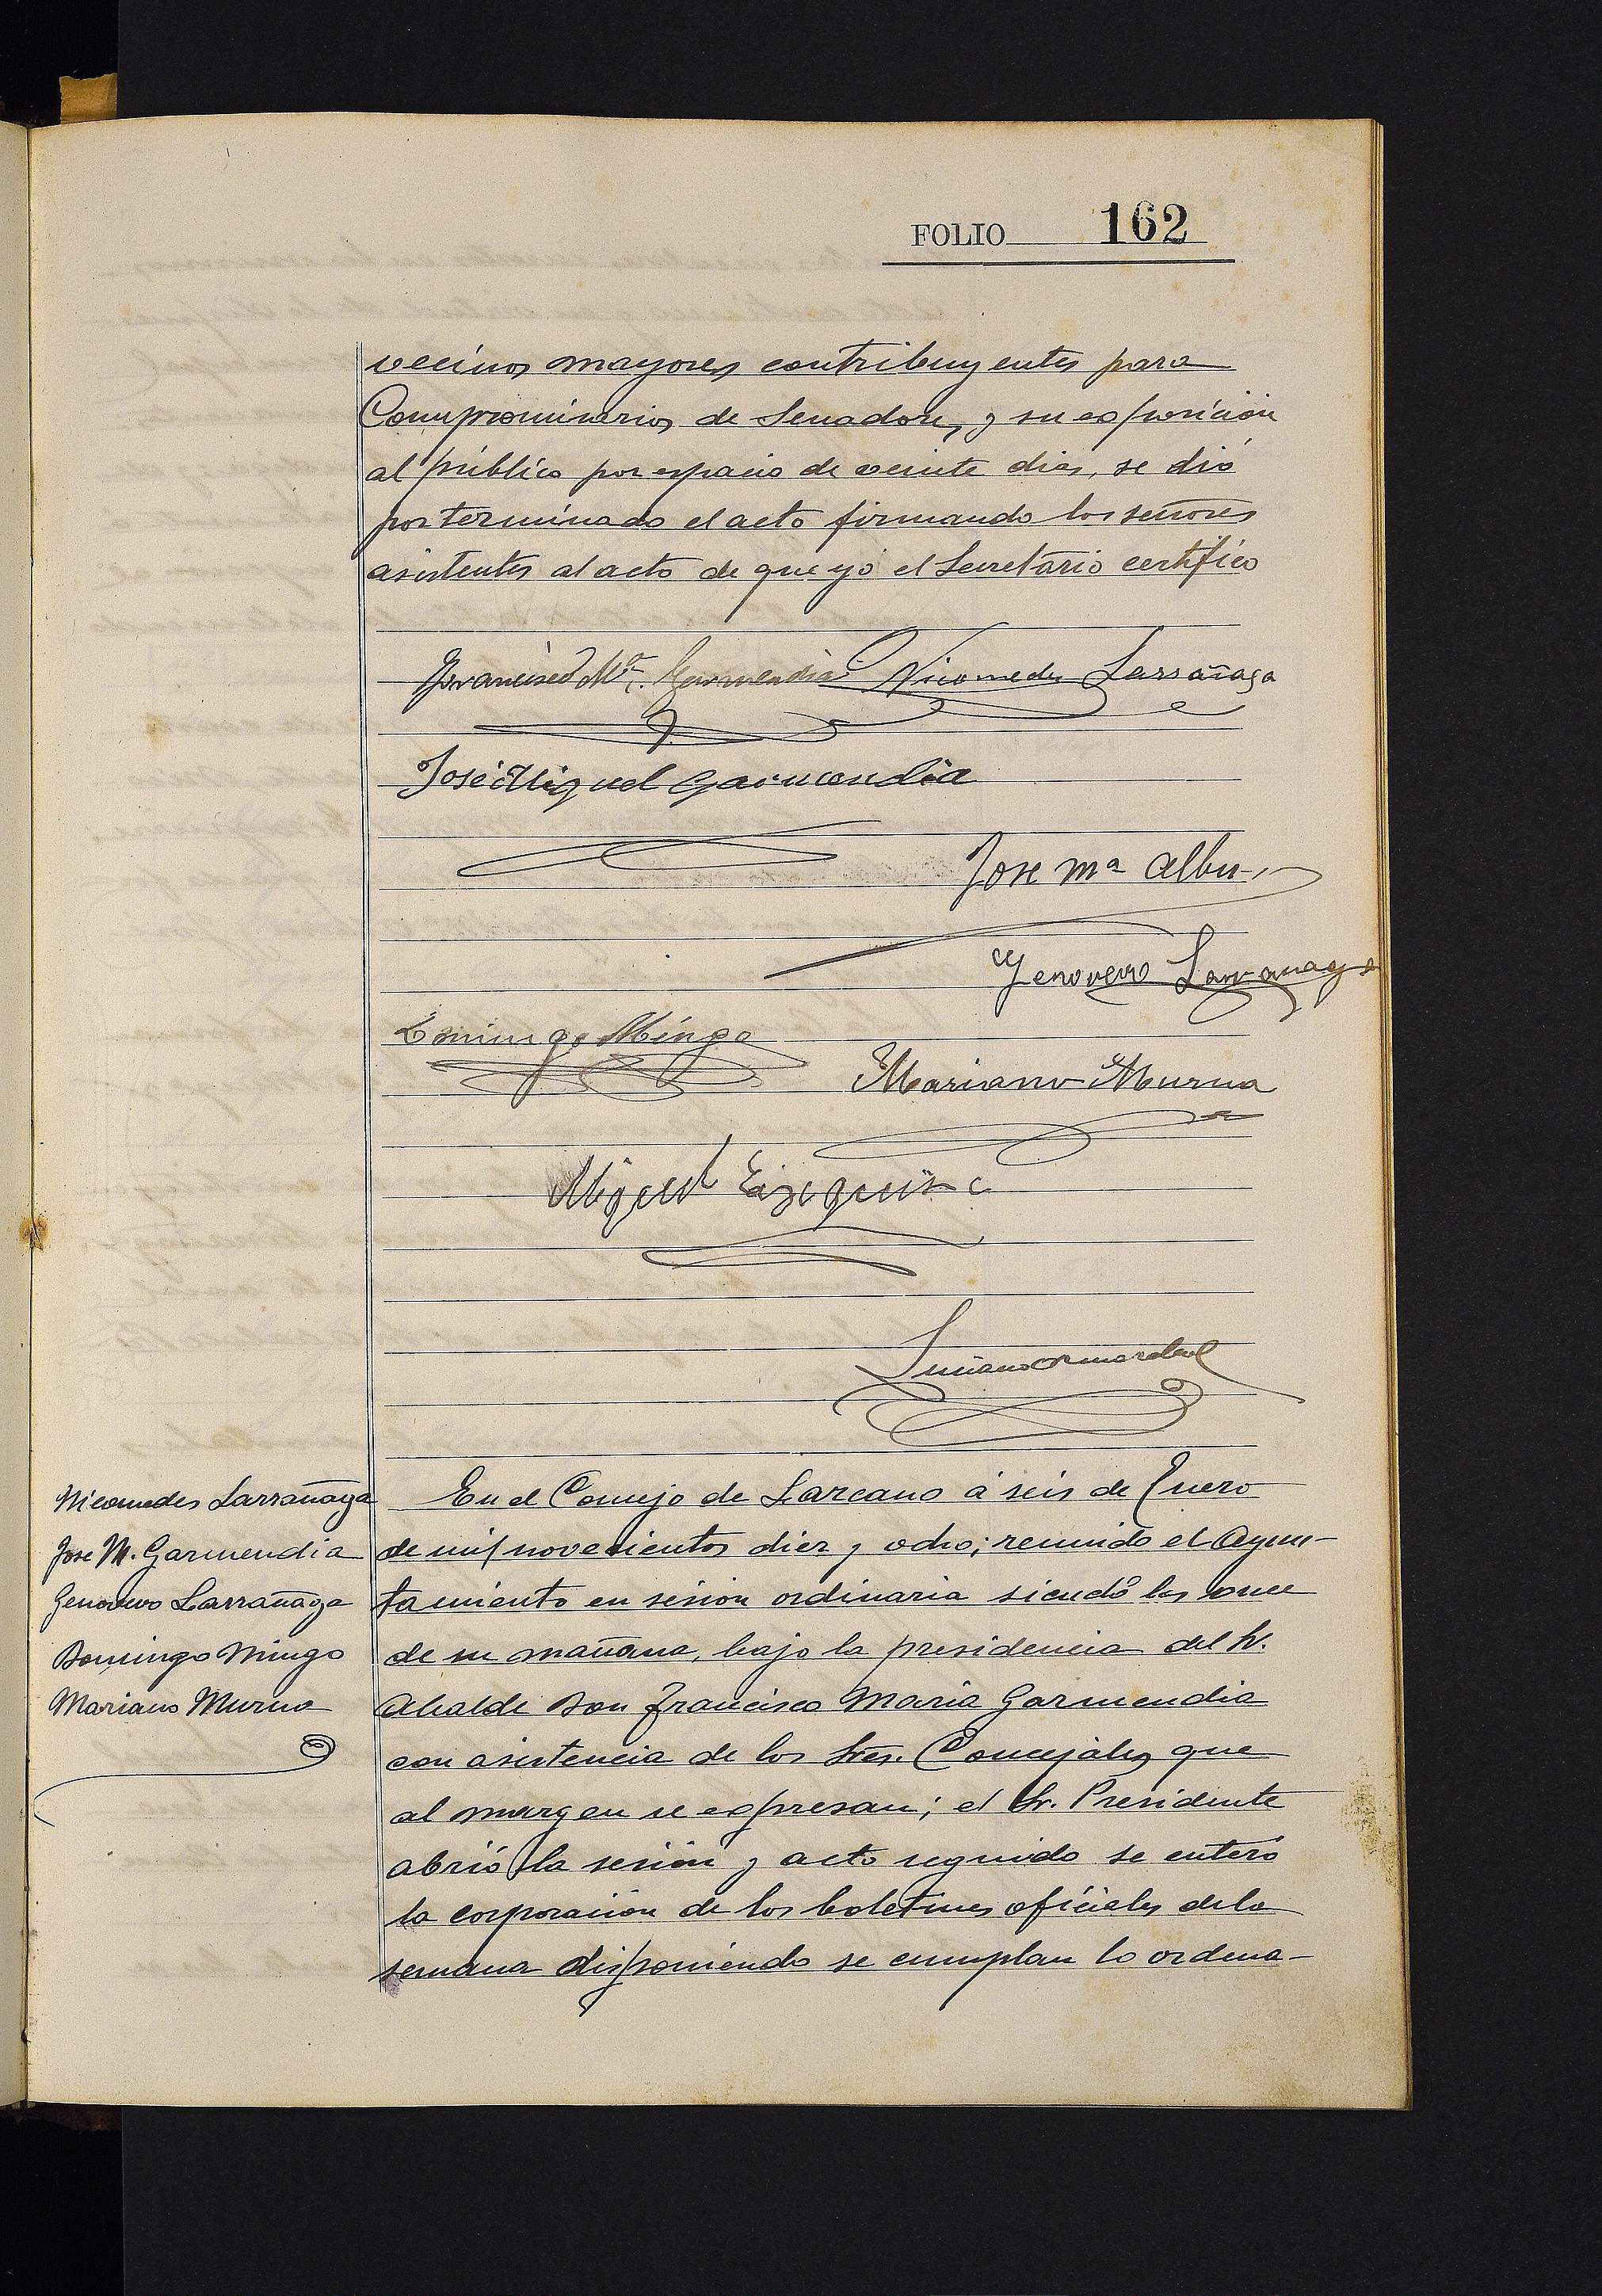 FOLIO 162
vecinos mayores contribuyentes para
Compromisarios de Senadores, y su exposición
al público por espacio de veinte dias, se dió
por terminado el acto firmando los señores
asistentes al acto de que yo el Secretario certifico
Francisco Mª Garmendia Nicomedes Larrañaga
José Miguel Garmendia
Jose Mª
Genovevo Larrañaga
Domingo Mingo
Mariano Murua
Miguel
Luciano
Nicomedes Larrañaga
Jose M. Garmendia
Genovevo Larrañaga
Domingo Mingo
Mariano Murua
En el Concejo de Lazcano á seis de Enero
de mil novecientos diez y ocho; reunido el Ayun-
tamiento en sesion ordinaria siendo las once
de su mañana, bajo la presidencia del Sr.
Alcalde Don Francisco Maria Garmendia
con asistencia de los Sres. Concejales que
al margen se expresan; el Sr. Presidente
abrió la sesión y acto seguido se enteró
la corporación de los boletines oficiales de la
semana disponiendo se cumplan lo ordena-